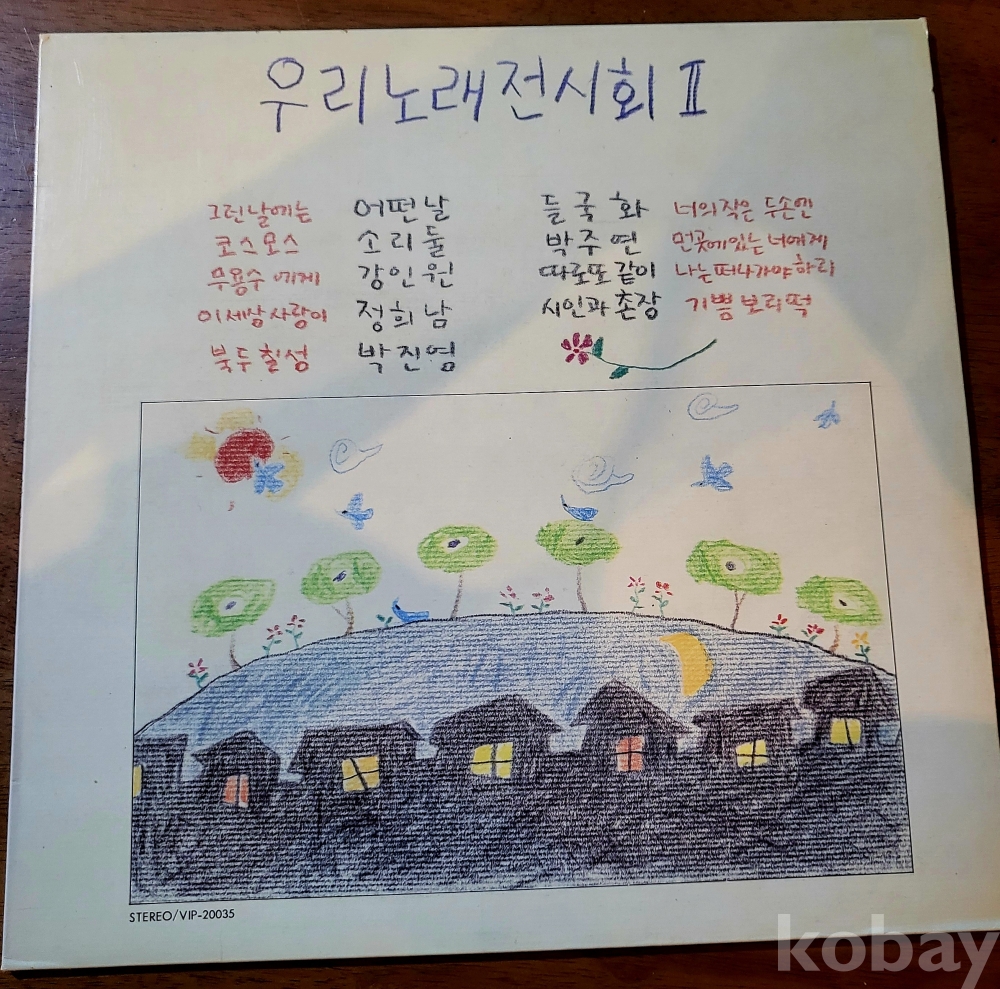 우리노래전시회 II
그런날에는 어떤날
코스모스 소리둘
무용수에게 강인원
이세상사랑이 정희남
북두칠성 박진영
들국화 너의작은 두손엔
박주연 먼곳에있는너에게
따로또같이 나는떠나가야하리
시인과촌장 기쁨보리떡
STEREO/VIP-20035
kobay